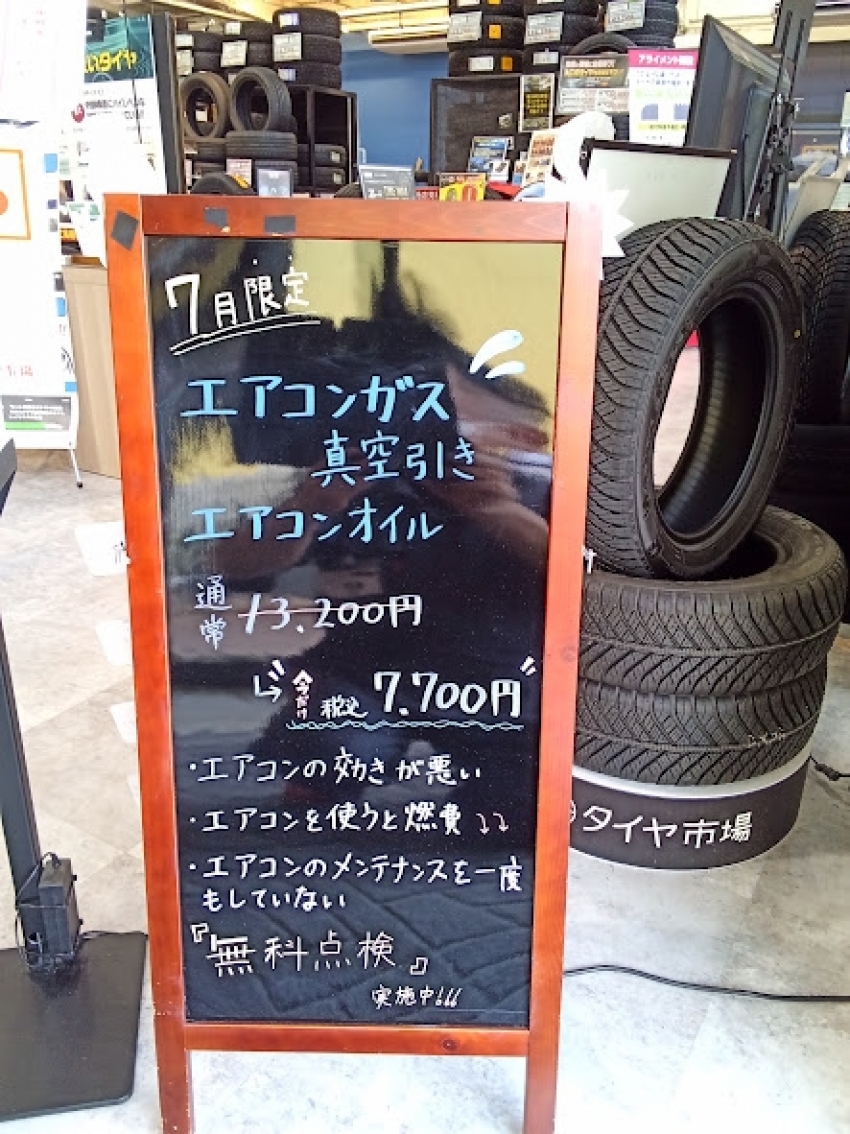 いタイヤ
アライメント
7月限定
エアコンガス
真空引き
エアコンオイル
通常 13.200円
今だけ 税込 7.700円
・エアコンの効きが悪い
・エアコンを使うと燃費↓↓
・エアコンのメンテナンスを一度
もしていない
『無料点検』
実施中!!!
タイヤ市場